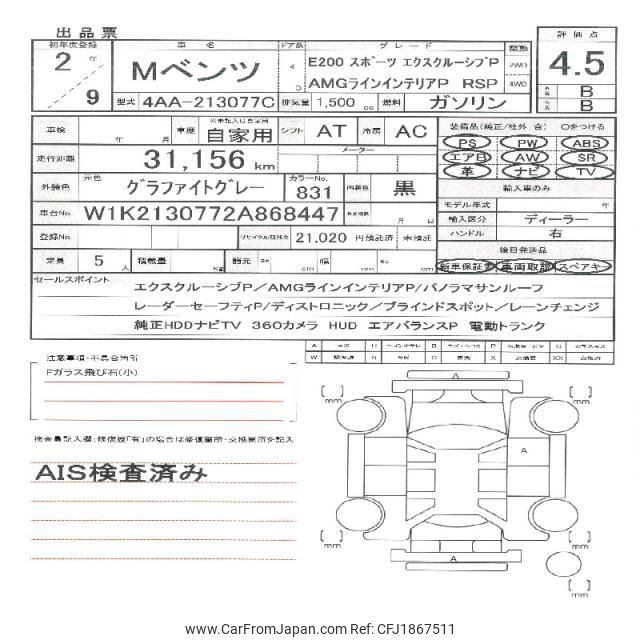 出品票
初年度登録 車名 ドア数 グレード 駆動 評価点
2年 Mベンツ 4D E200 スポーツ エクスクルーシブP 2WD 4.5
9 AMGラインインテリアP RSP 4WD B
型式 4AA-213077C 排気量 1,500 cc 燃料 ガソリン B
車検 年 月 車歴 ※未記入は自家用 自家用 シフト AT 冷房 AC 装備品(純正/社外 含) ○をつける
PS PW ABS
走行距離 31,156 km メーター エアB AW SR
革 ナビ TV
外装色 元色 グラファイトグレー カラーNo. 831 内装色 黒 輸入車のみ
モデル年式 年
車台No. W1K2130772A868447 月 日 輸入区分 ディーラー
登録No. リサイクル預託金 21,020 円預託済 未預託 ハンドル 右
後日発送品
定員 5人 積載量 Kg 諸元 cm 幅 cm cm 新車保証書 車両取説 スペアキー
セールスポイント
エクスクルーシブP/AMGラインインテリアP/パノラマサンルーフ
レーダーセーフティP/ディストロニック/ブラインドスポット/レーンチェンジ
純正HDDナビTV 360カメラ HUD エアバランスP 電動トランク
注意事項・不具合箇所
Fガラス飛び石(小)
検査員記入欄:修復歴「有」の場合は修復箇所・交換箇所を記入
AIS検査済み
A
A
A
mm
mm
mm
mm
mm
www.CarFromJapan.com Ref: CFJ1867511